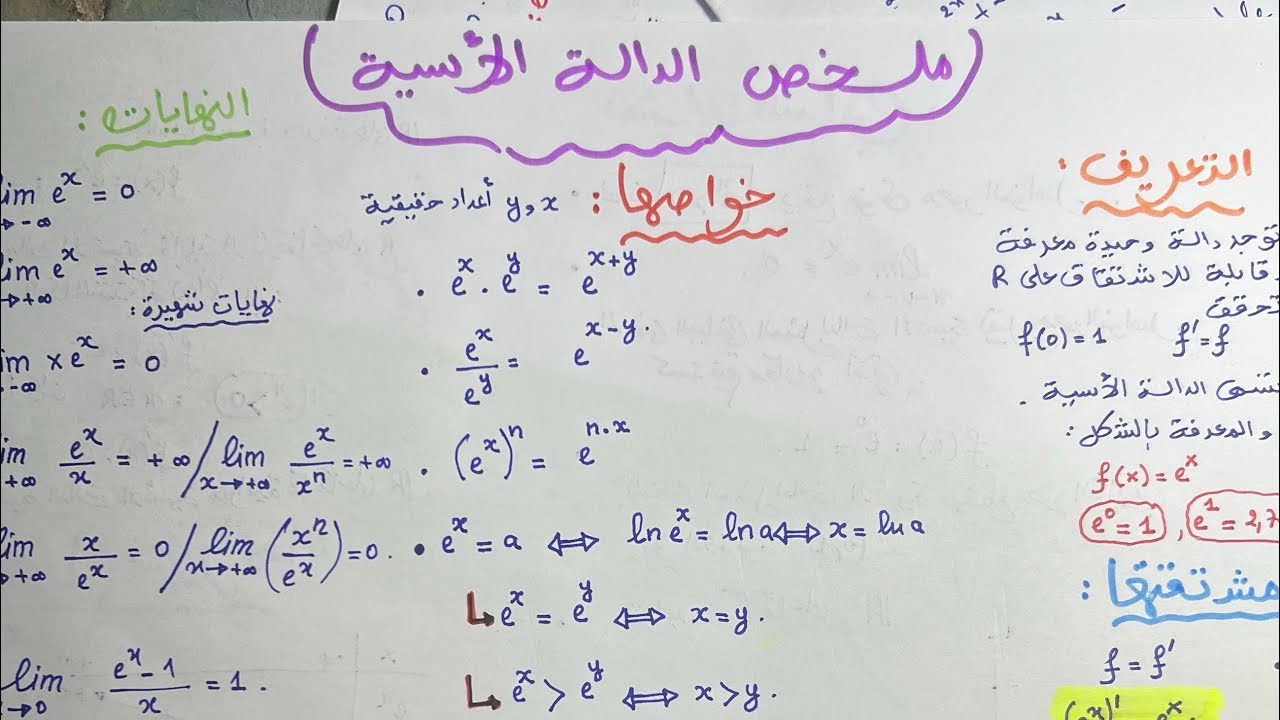 ملخص الدالة الأسية
التعريف :
توجد دالة وحيدة معرفة
قابلة للاشتقاق على R
تحقق
f(0) = 1 f' = f
تسمى الدالة الأسية .
والمعرفة بالشكل :
f(x) = e^x
e^0 = 1 , e^1 = 2,7
مشتقتها :
f = f'
(e^x)' e^x
خواصها : x و y أعداد حقيقية
• e^x . e^y = e^{x+y}
• e^x / e^y = e^{x-y} .
• (e^x)^n = e^{n.x}
• e^x = a ⟺ ln e^x = ln a ⟺ x = ln a
↳ e^x = e^y ⟺ x = y .
↳ e^x > e^y ⟺ x > y .
النهايات :
lim e^x = 0
x → -∞
lim e^x = +∞
→ +∞
نهايات شهيرة :
lim x e^x = 0
-∞
lim e^x / x = +∞ / lim_{x→+∞} e^x / x^n = +∞
+∞
lim x / e^x = 0 / lim_{x→+∞} (x^n / e^x) = 0 .
→ +∞
lim (e^x - 1) / x = 1 .
→ 0